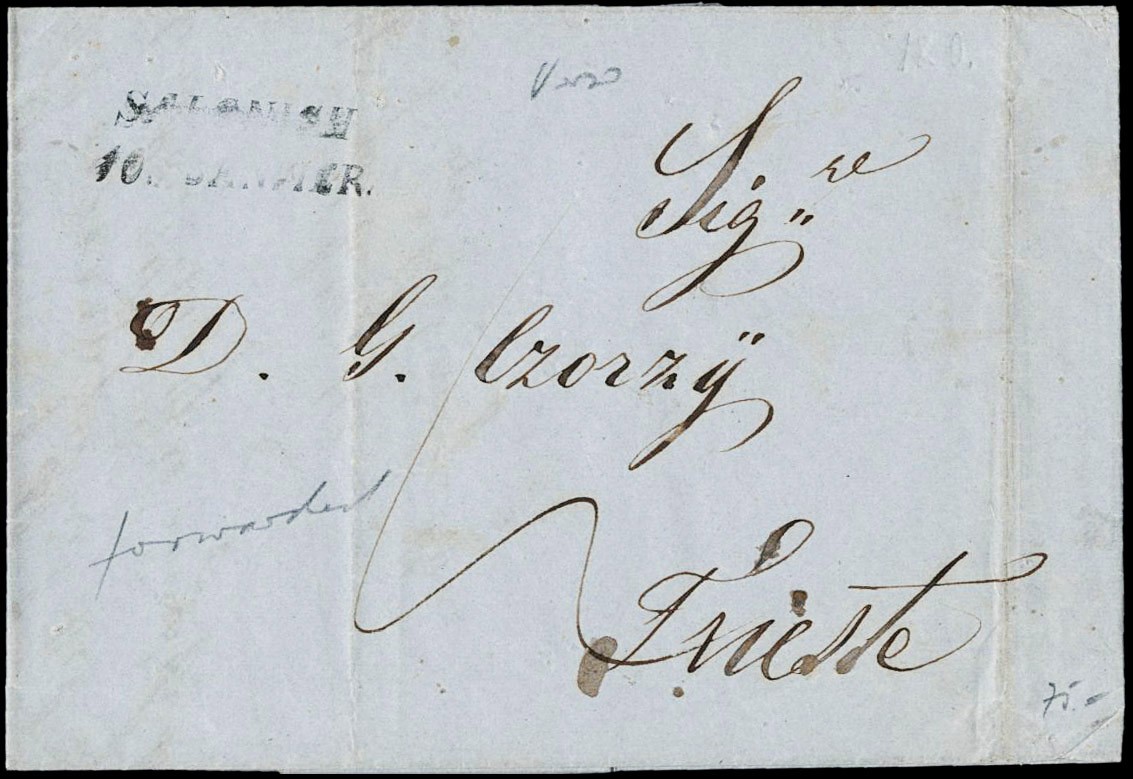 SALONICH
10. JANNER.
Verso
120.
Sig.re
D. G. Czorzÿ
forwarded
Trieste
75.-